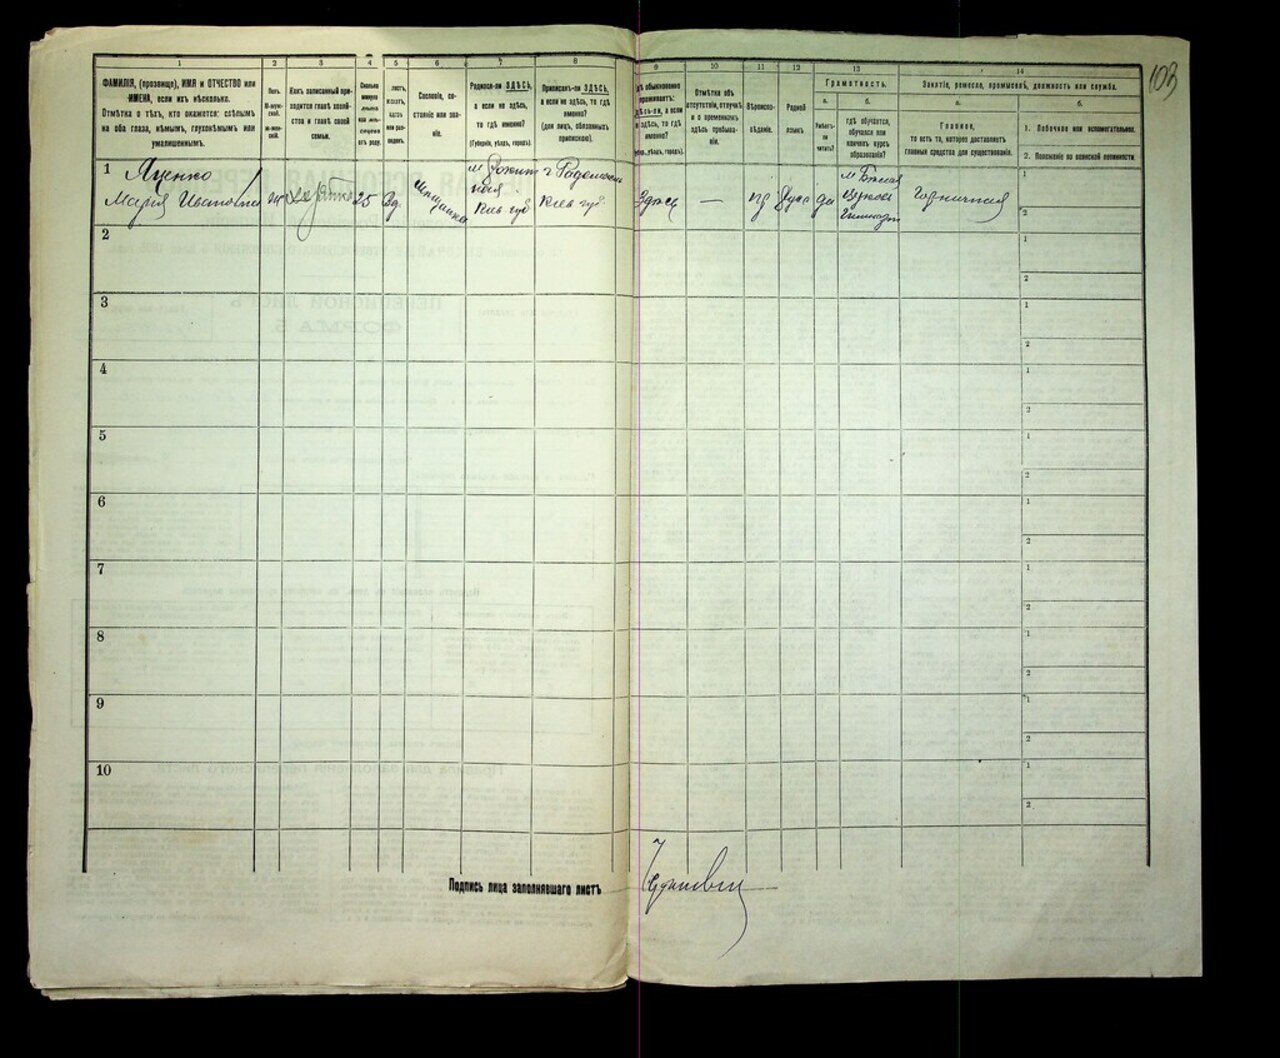 103
1 2 3 4 5 6 7 8 9 10 11 12 13 14
ФАМИЛІЯ, (прозвище), ИМЯ и ОТЧЕСТВО или
ИМЕНА, если ихъ нѣсколько.
Отмѣтка о тѣхъ, кто окажется: слѣпымъ
на оба глаза, нѣмымъ, глухонѣмымъ или
умалишеннымъ.
Полъ.
М-муж-
ской.
Ж-жен-
скій.
Какъ записанный при-
ходится главѣ хозяй-
ства и главѣ своей
семьи.
Сколько
минуло
лѣтъ
или мѣ-
сяцевъ
отъ роду.
Сословіе, со-
стояніе или зва-
ніе.
Родился-ли ЗДѢСЬ,
а если не здѣсь,
то гдѣ именно?
(Губернія, уѣздъ, городъ).
Приписанъ-ли ЗДѢСЬ,
а если не здѣсь, то гдѣ
именно?
(для лицъ, обязанныхъ
припискою).
Гдѣ обыкновенно
проживаетъ:
здѣсь-ли, а если
не здѣсь, то гдѣ
именно?
(Губер., уѣздъ, городъ).
Отмѣтка объ
отсутствіи, отлучкѣ
и о временномъ
здѣсь пребыва-
ніи.
Вѣроиспо-
вѣданіе.
Родной
языкъ.
Грамотность.
а.
Умѣетъ-
ли
читать?
б.
гдѣ обучается,
обучался или
кончилъ курсъ
образованія?
Занятіе, ремесло, промыселъ, должность или служба.
а.
Главное,
то есть то, которое доставляетъ
главныя средства для существованія.
б.
1. Побочное или вспомогательное.
2. Положеніе по воинской повинности
1 Яценко
Марія Ивановна
ж
25
Зд.
Мѣщанка
Кіев губ
г Радомысль
Кіев губ.
Здѣсь
—
пр
Русс
да
Горничная
1
2
2
1
2
3
1
2
4
1
2
5
1
2
6
1
2
7
1
2
8
1
2
9
1
2
10
1
2
Подпись лица заполнявшаго листъ